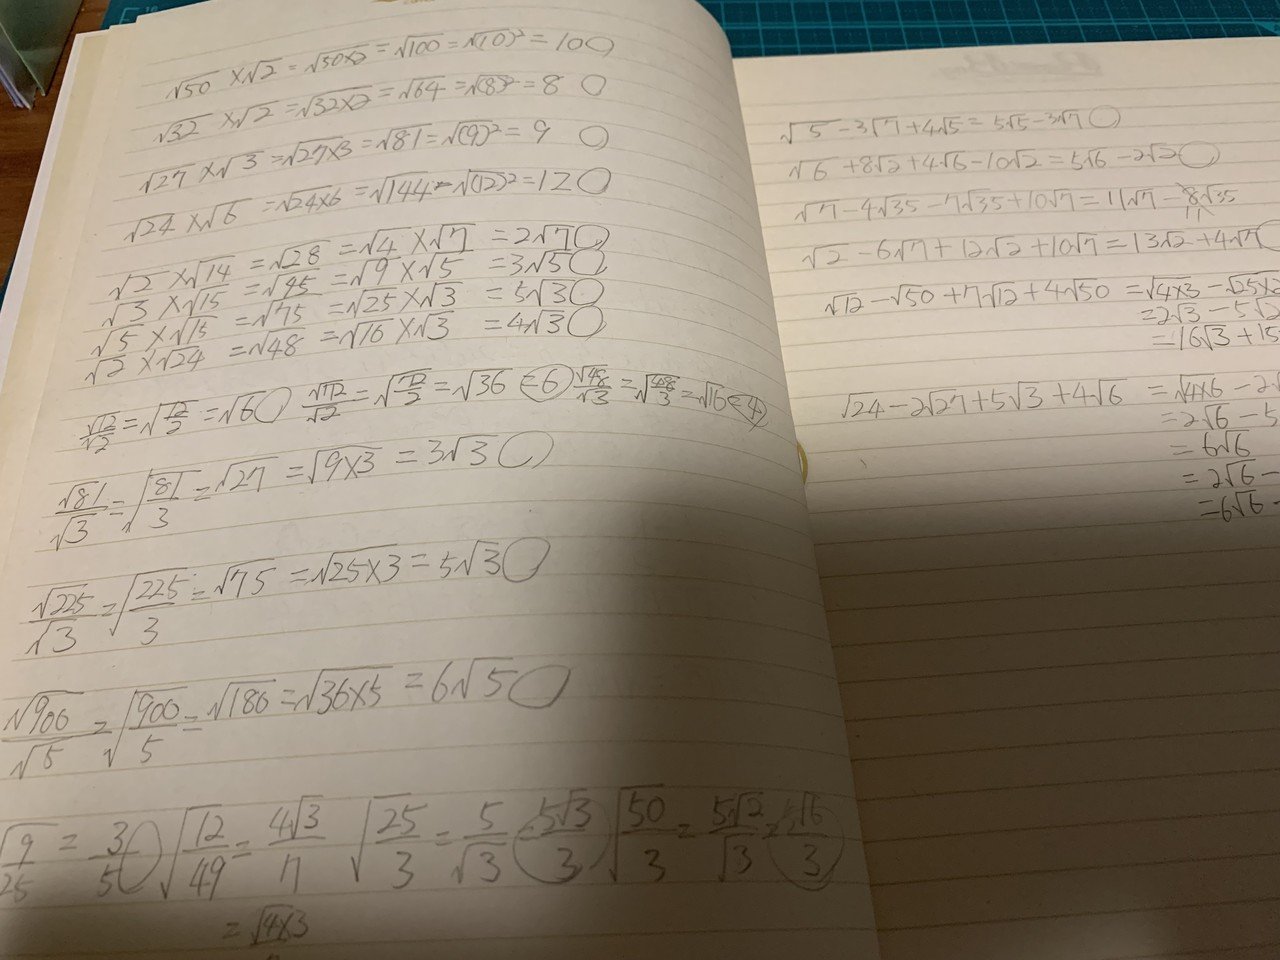 √50 × √2 = √50×2 = √100 = √(10)² = 10 ○
√32 × √2 = √32×2 = √64 = √(8)² = 8 ○
√27 × √3 = √27×3 = √81 = √(9)² = 9 ○
√24 × √6 = √24×6 = √144 = √(12)² = 12 ○
√2 × √14 = √28 = √4 × √7 = 2√7 ○
√3 × √15 = √45 = √9 × √5 = 3√5 ○
√5 × √15 = √75 = √25 × √3 = 5√3 ○
√2 × √24 = √48 = √16 × √3 = 4√3 ○
√12/√2 = √(12/2) = √6 ○ √(72/2) = √36 = 6 √48/√3 = √(48/3) = √16 = 4
√81/√3 = √(81/3) = √27 = √9×3 = 3√3 ○
√225/√3 = √(225/3) = √75 = √25×3 = 5√3 ○
√900/√5 = √(900/5) = √180 = √36×5 = 6√5 ○
√(9/25) = 3/5 ○ √(12/49) = 4√3/ √(25/3) = 5/√3 = 5√3/3 √(50/3) = 5√2/√3 = 5√6/3
= √4×3
√5 - 3√7 + 4√5 = 5√5 - 3√7 ○
√6 + 8√2 + 4√6 - 10√2 = 5√6 - 2√2 ○
√7 - 4√35 - 7√35 + 10√7 = 11√7 - 8√35
11
√2 - 6√7 + 12√2 + 10√7 = 13√2 + 4√7
√12 - √50 + 7√12 + 4√50 = √4×3 - √25×2
= 2√3 - 5√2
= 16√3 + 15
√24 - 2√27 + 5√3 + 4√6 = √4×6 - 2√
= 2√6 - 5
= 6√6
= 2√6 -
= 6√6 -